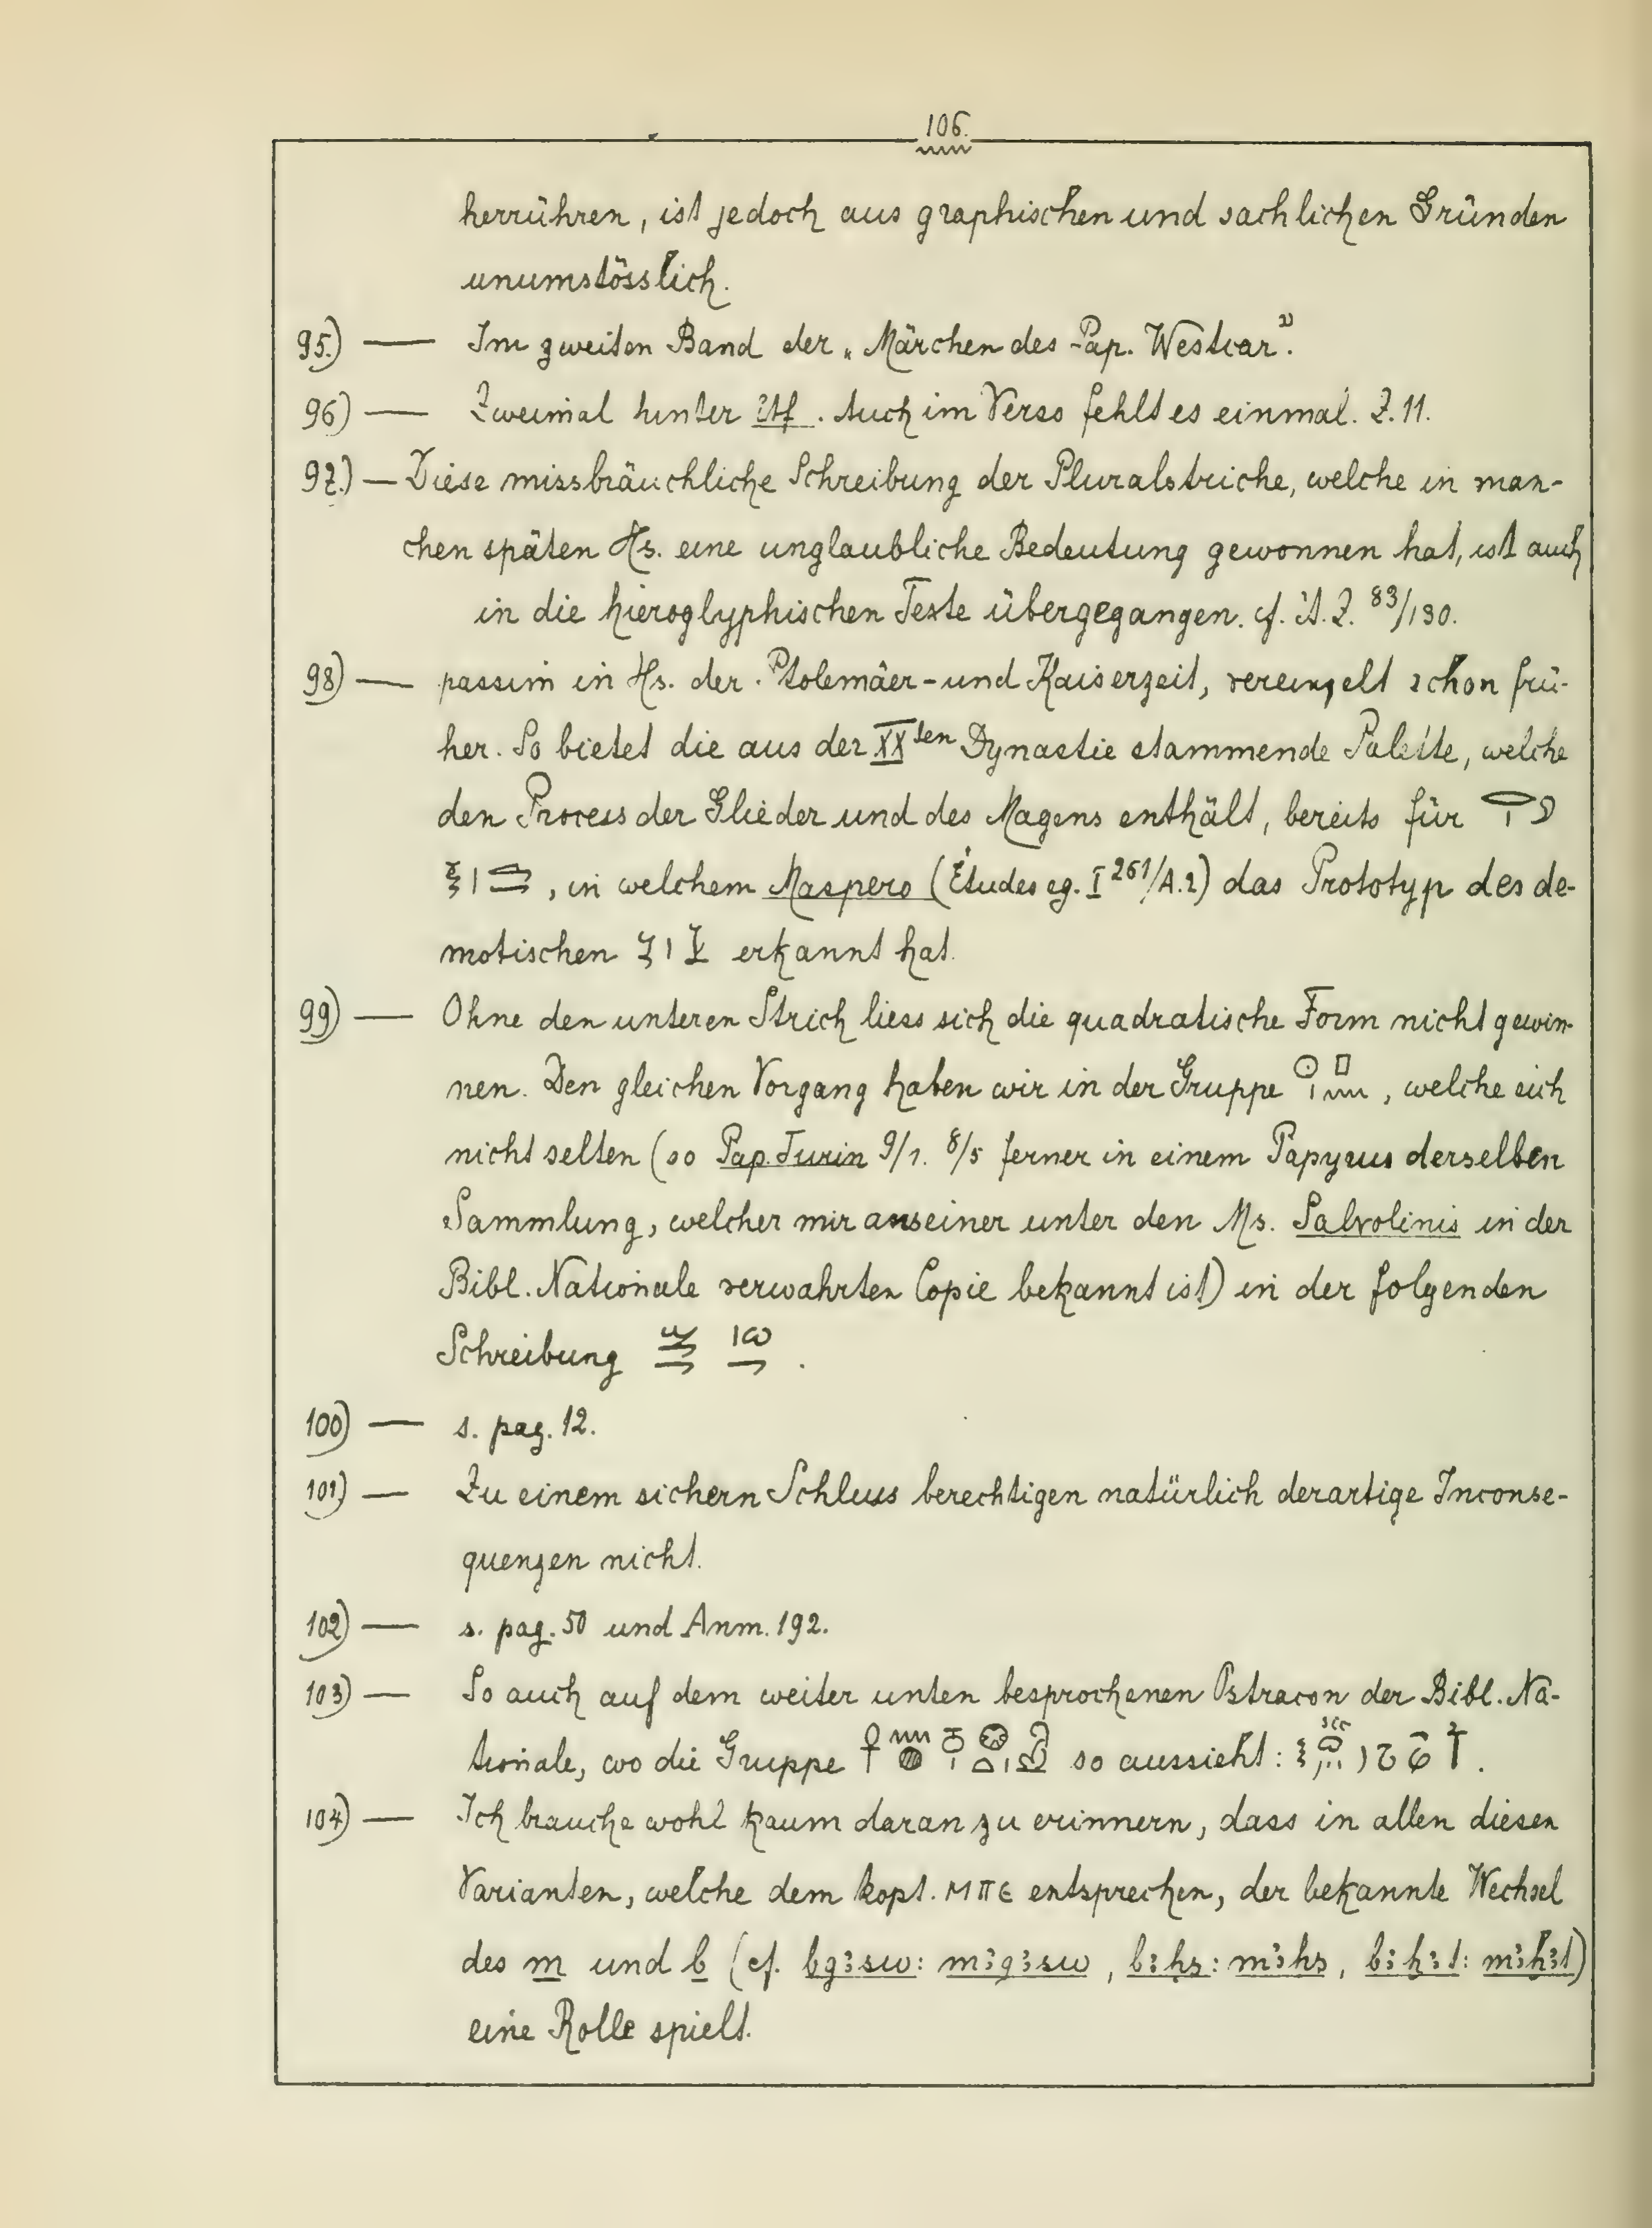 106.
herrühren, ist jedoch aus graphischen und sachlichen Gründen
unumstösslich.
95) — Im zweiten Band der „Märchen des Pap. Westcar".
96) — Zweimal hinter . Auch im Verso fehlt es einmal. Z. 11.
97.) — Diese missbräuchliche Schreibung der Pluralstriche, welche in man-
chen späten Hs. eine unglaubliche Bedeutung gewonnen hat, ist auch
in die hieroglyphischen Texte übergegangen. cf. Ä. Z. 83/130.
98) — passim in Hs. der Ptolemäer- und Kaiserzeit, vereinzelt schon frü-
her. So bietet die aus der XXten Dynastie stammende Palette, welche
den Process der Glieder und des Magens enthält, bereits für
, in welchem Maspero (Études eg. I 261/A.2) das Prototyp des de-
motischen erkannt hat.
99) — Ohne den unteren Strich liess sich die quadratische Form nicht gewin-
nen. Den gleichen Vorgang haben wir in der Gruppe , welche sich
nicht selten (so Pap. Turin 9/1. 8/5 ferner in einem Papyrus derselben
Sammlung, welcher mir aus einer unter den Ms. Salvolinis in der
Bibl. Nationale verwahrten Copie bekannt ist) in der folgenden
Schreibung .
100) — s. pag. 12.
101) — Zu einem sichern Schluss berechtigen natürlich derartige Inconse-
quenzen nicht.
102) — s. pag. 50 und Anm. 192.
103) — So auch auf dem weiter unten besprochenen Ostracon der Bibl. Na-
tionale, wo die Gruppe so aussieht: .
104) — Ich brauche wohl kaum daran zu erinnern, dass in allen diesen
Varianten, welche dem kopt. ⲙⲡⲉ entsprechen, der bekannte Wechsel
des m und b (cf. bgꜣsw: mꜣgꜣsw, bꜣhs: mꜣhs, bꜣḥꜣt: mꜣḥꜣt)
eine Rolle spielt.